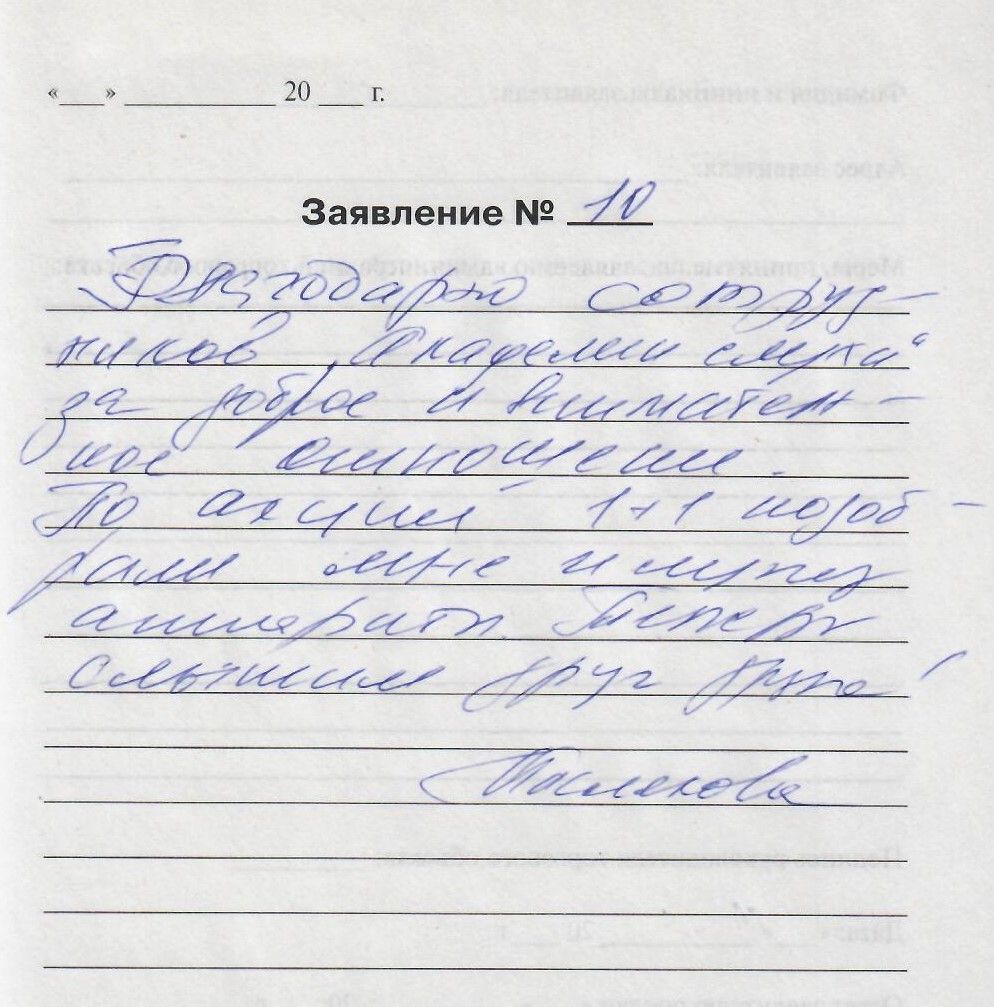 «___» ____________ 20 ___ г.
Заявление № 10
Благодарю сотруд-
ников "Академии слуха"
за доброе и вниматель-
ное отношение.
По акции 1+1 подоб-
рали мне и мужу
аппараты. Теперь
слышим друг друга!